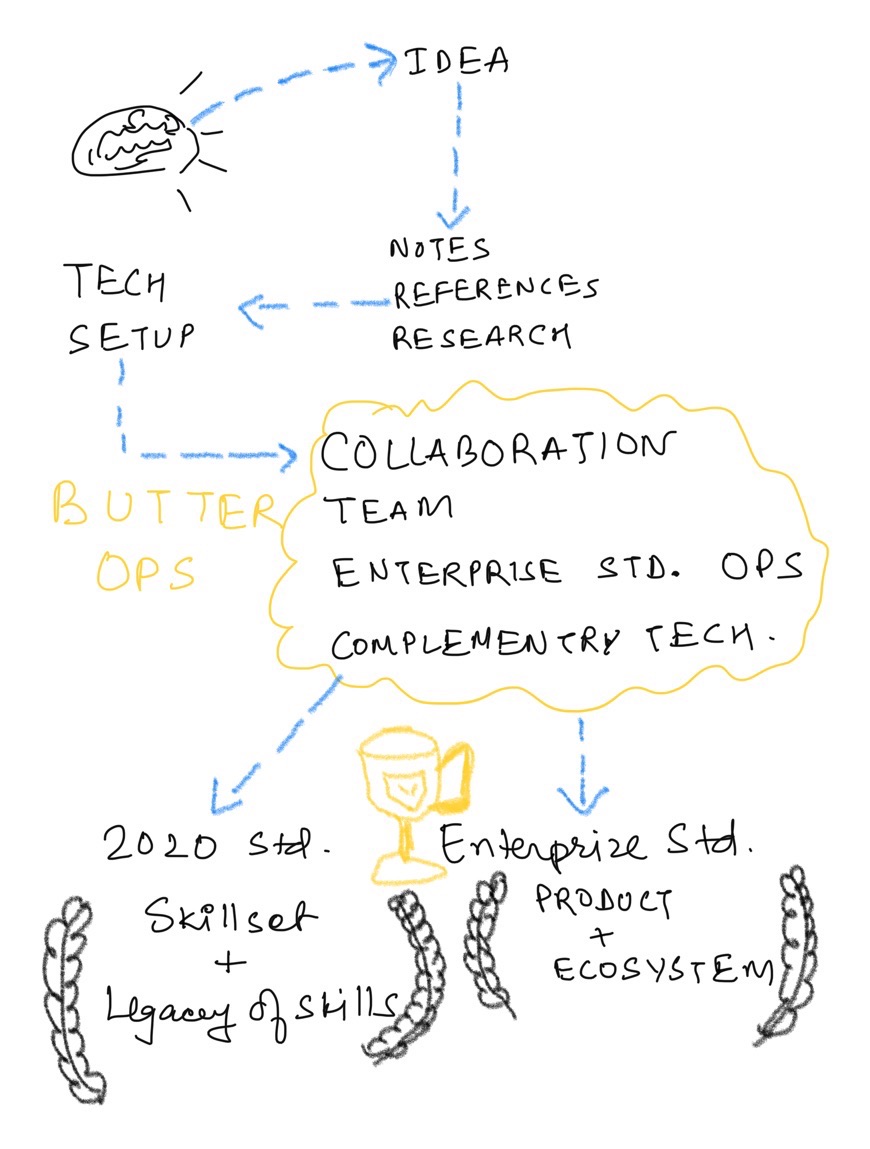 IDEA
NOTES
REFERENCES
RESEARCH
TECH
SETUP
BUTTER
OPS
COLLABORATION
TEAM
ENTERPRISE STD. OPS
COMPLEMENTRY TECH.
2020 Std.
Skillset
+
Legacey of skills
Enterprize Std.
PRODUCT
+
ECOSYSTEM